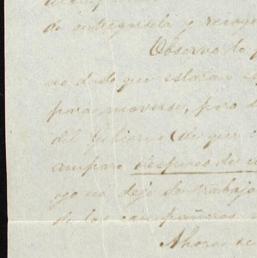 de entregarsela y recoge
Observo lo
no dudo que estaran
para moverse, pero
del Gobierno (de que
amparo despues de
yo no dejo de trabaja
de los campañeros
Ahora